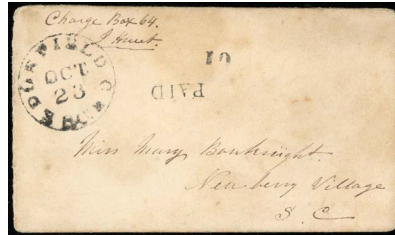 Charge Box 64.
EDGEFIELD C.H.
OCT
23
10
PAID
Miss Mary Bouknight.
Newberry Village
S. C